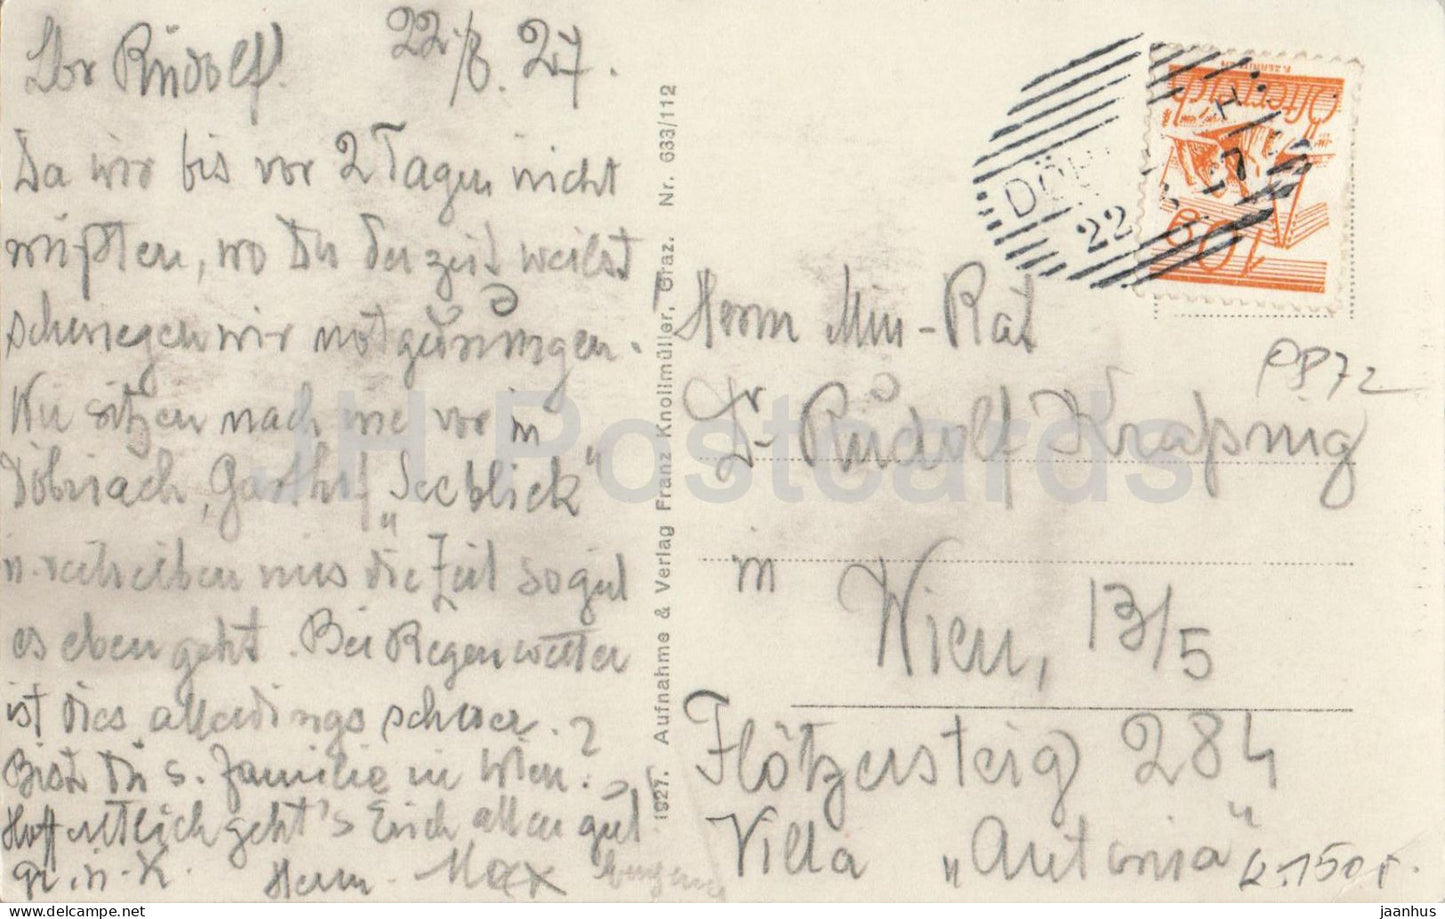 Lbr Rudolf! 22./8. 27.
Da wir bis vor 2 Tagen nicht
wüßten, wo Du derzeit weilst
schwiegen wir notgedrungen.
Wir sitzen nach wie vor in
Döbriach, Gasthf „Seeblick"
u. vertreiben uns die Zeit so gut
es eben geht. Bei Regenwetter
ist dies allerdings schwer.
Bist Du s. Familie in Wien?
Hoffentlich geht's Euch allen gut.
gr. u. K. Herm. Max
1927. Aufnahme & Verlag Franz Knollmüller, Graz. Nr. 633/112
DÖB
22 27
Österreich
10 g
Herrn Min-Rat
Dr Rudolf
in
Wien, 13/5
Flötzersteig 284
Villa „Antonia"
PP72
JH Postcards
delcampe.net
jaanhus